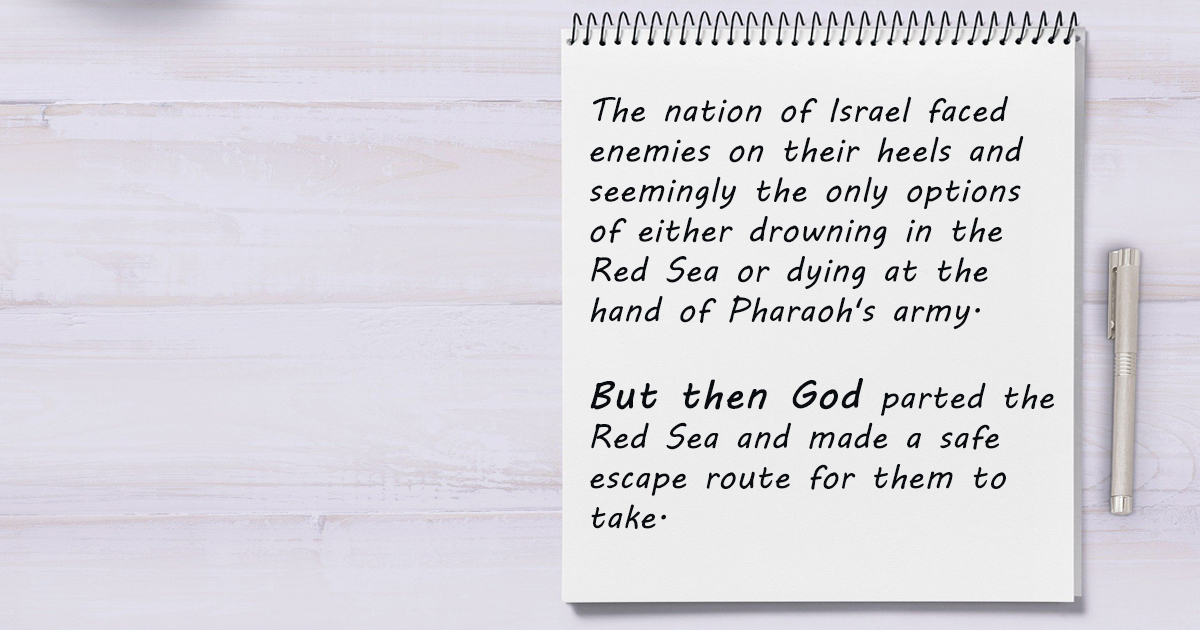 The nation of Israel faced
enemies on their heels and
seemingly the only options
of either drowning in the
Red Sea or dying at the
hand of Pharaoh's army.
But then God parted the
Red Sea and made a safe
escape route for them to
take.